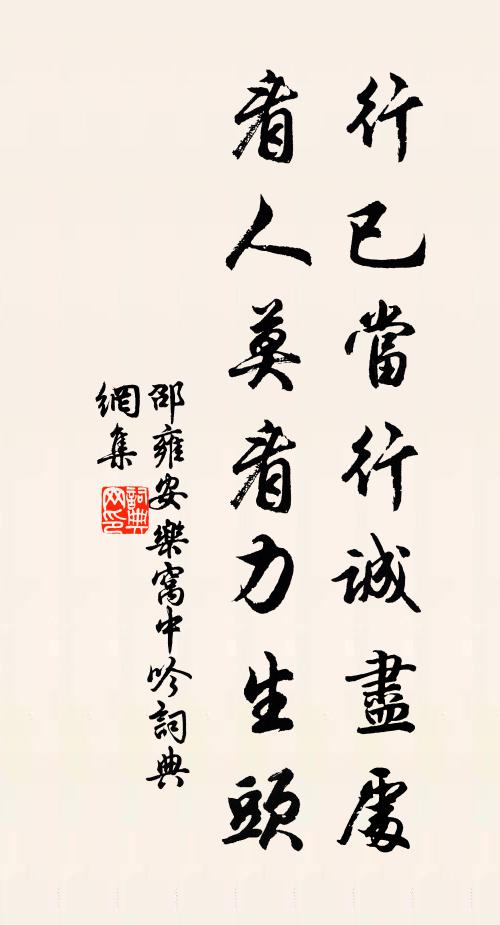 行已當行誠盡處
看人莫看力生頭
邵雍安樂窩中吟詞典
網集
詞典
网印